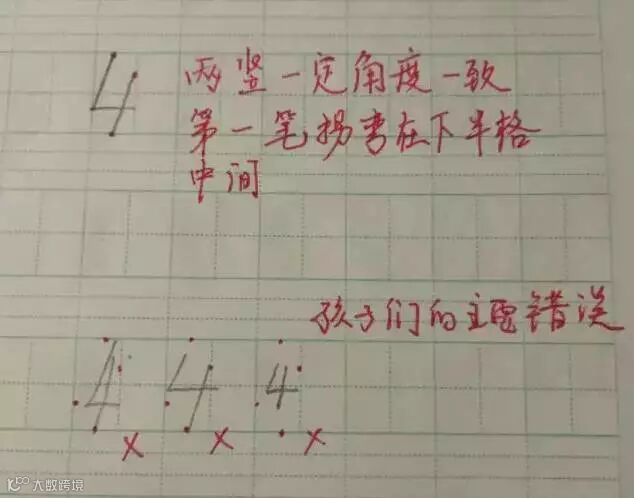 4
两竖一定角度一致
第一笔拐弯在下半格
中间
孩子们的主要错误
4 4 4
× × ×
大数跨境